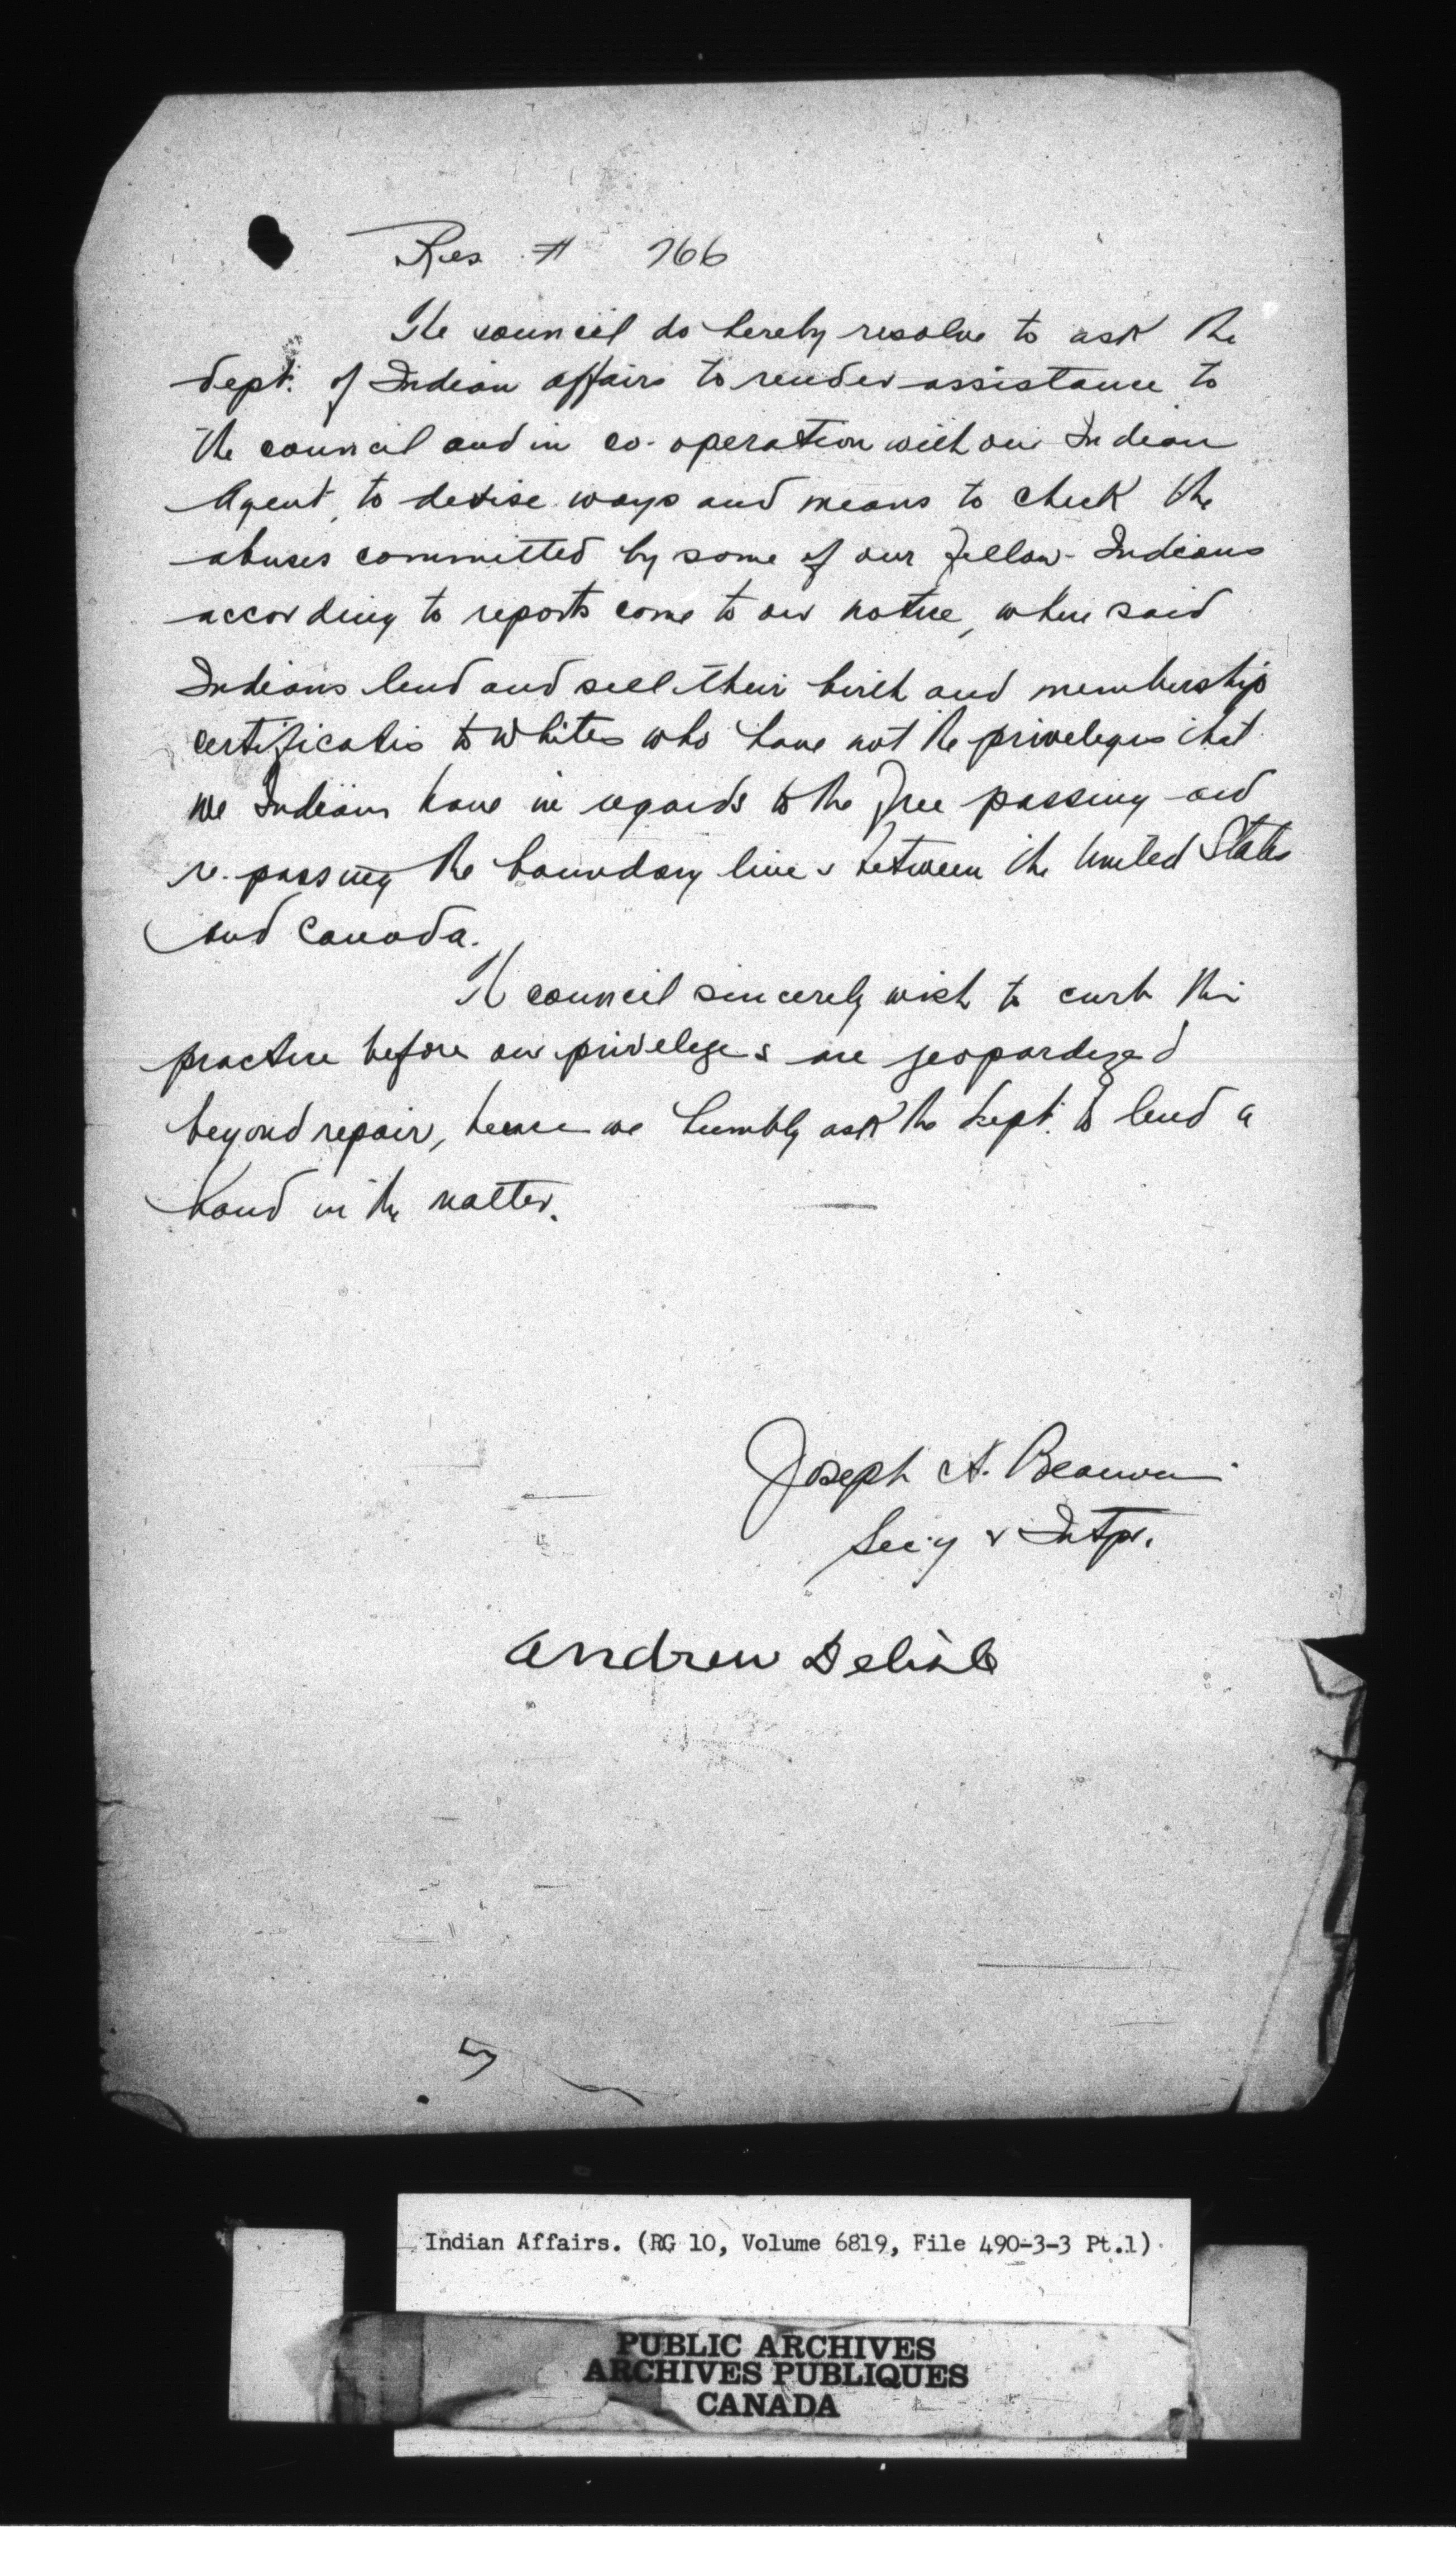 Res # 766
The council do hereby resolve to ask the
dept. of Indian affairs to render assistance to
the council and in co-operation with our Indian
Agent, to devise ways and means to check the
abuses committed by some of our fellow-Indians
according to reports come to our notice, when said
Indians lend and sell their birth and membership
certificates to whites who have not the priveleges that
we Indians have in regards to the free passing and
re-passing the boundary lines between the United States
and Canada.
The council sincerely wish to curb this
practice before our priveleges are jeopardized
beyond repair, hence we humbly ask the dept. to lend a
hand in the matter.
Joseph A. Beauvais
Sec'y & Intpr.
Andrew Delisle
Indian Affairs. (RG 10, Volume 6819, File 490-3-3 Pt.1)
PUBLIC ARCHIVES
ARCHIVES PUBLIQUES
CANADA